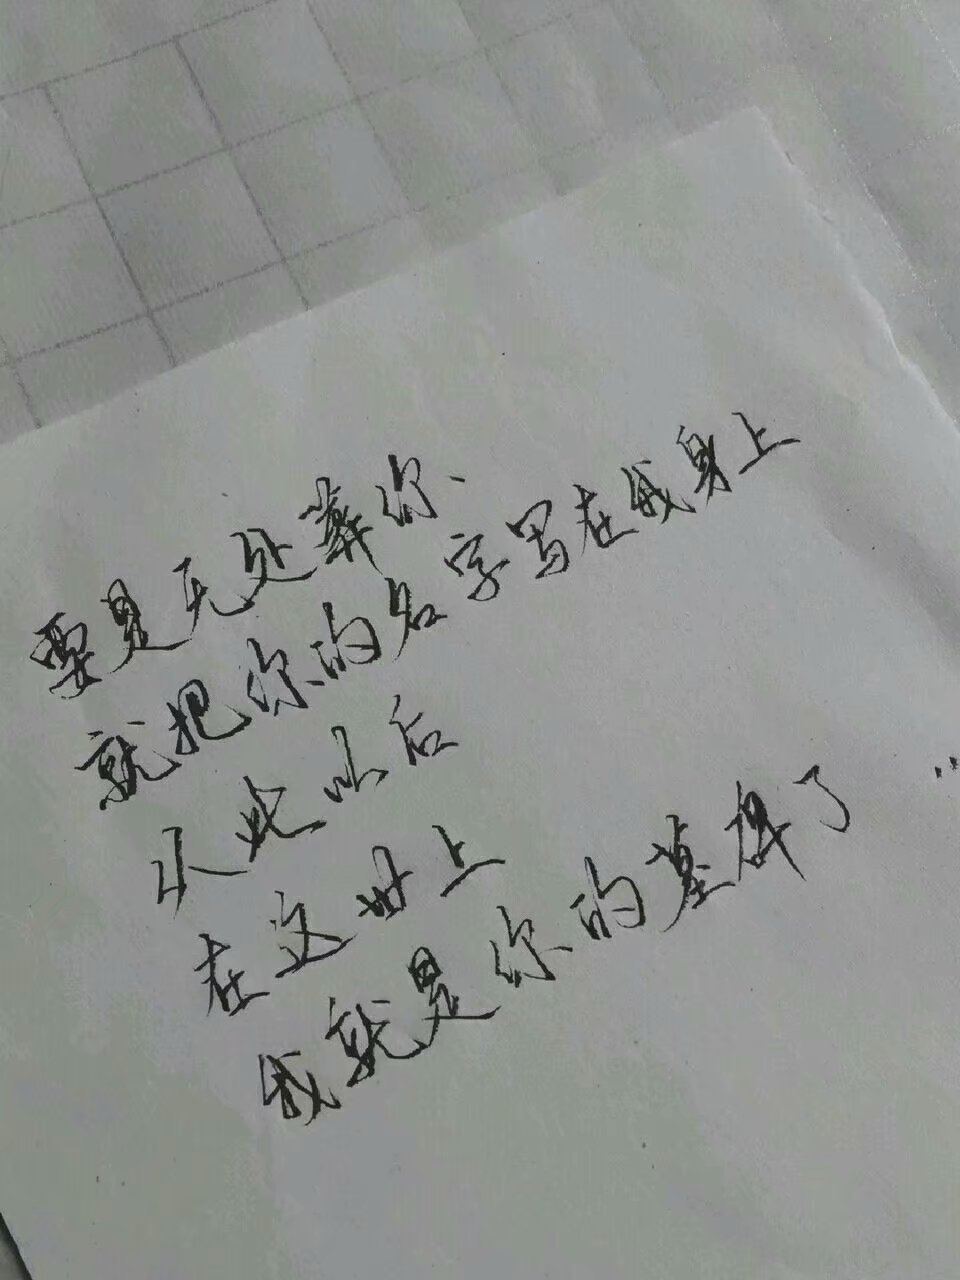 要是无处葬你
就把你的名字写在我身上
从此以后
在这世上
我就是你的墓碑了